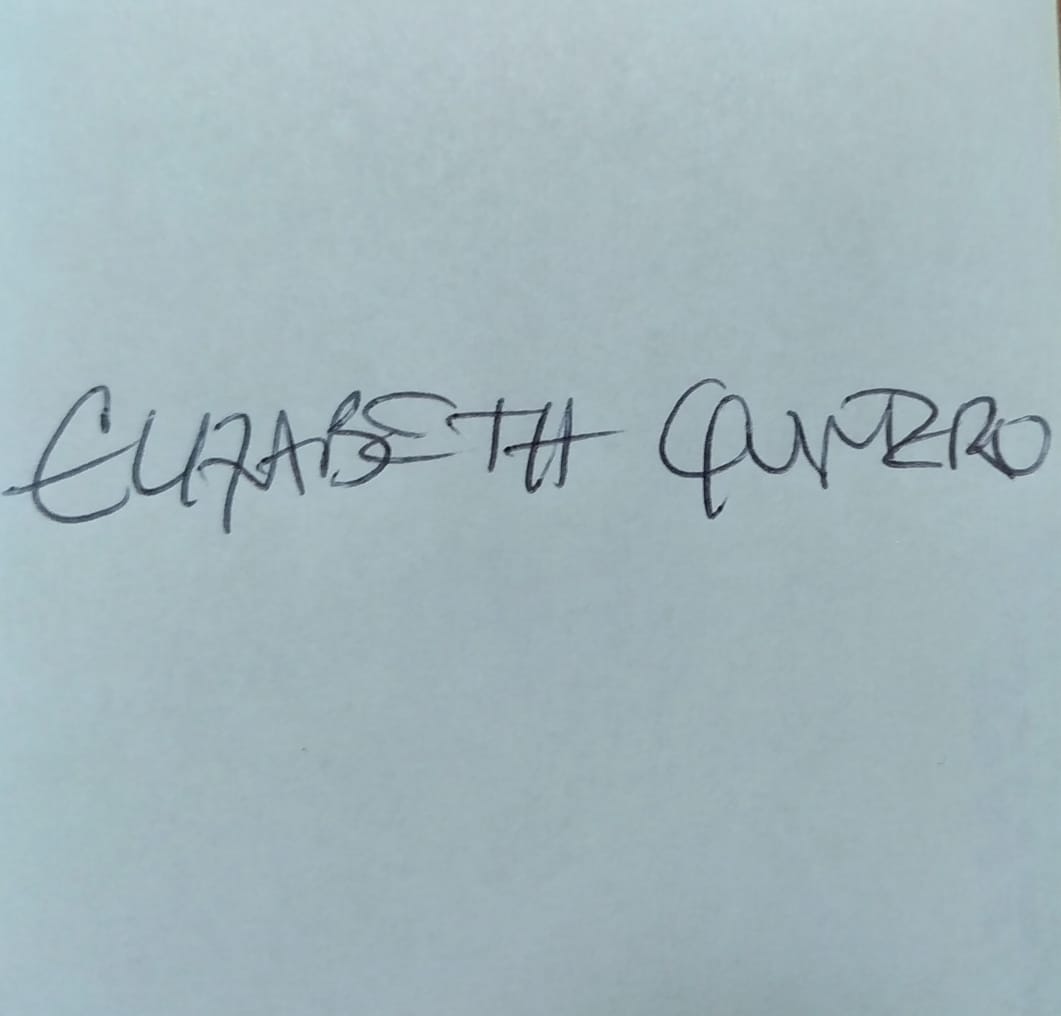 ELIZABETH QUINTERO